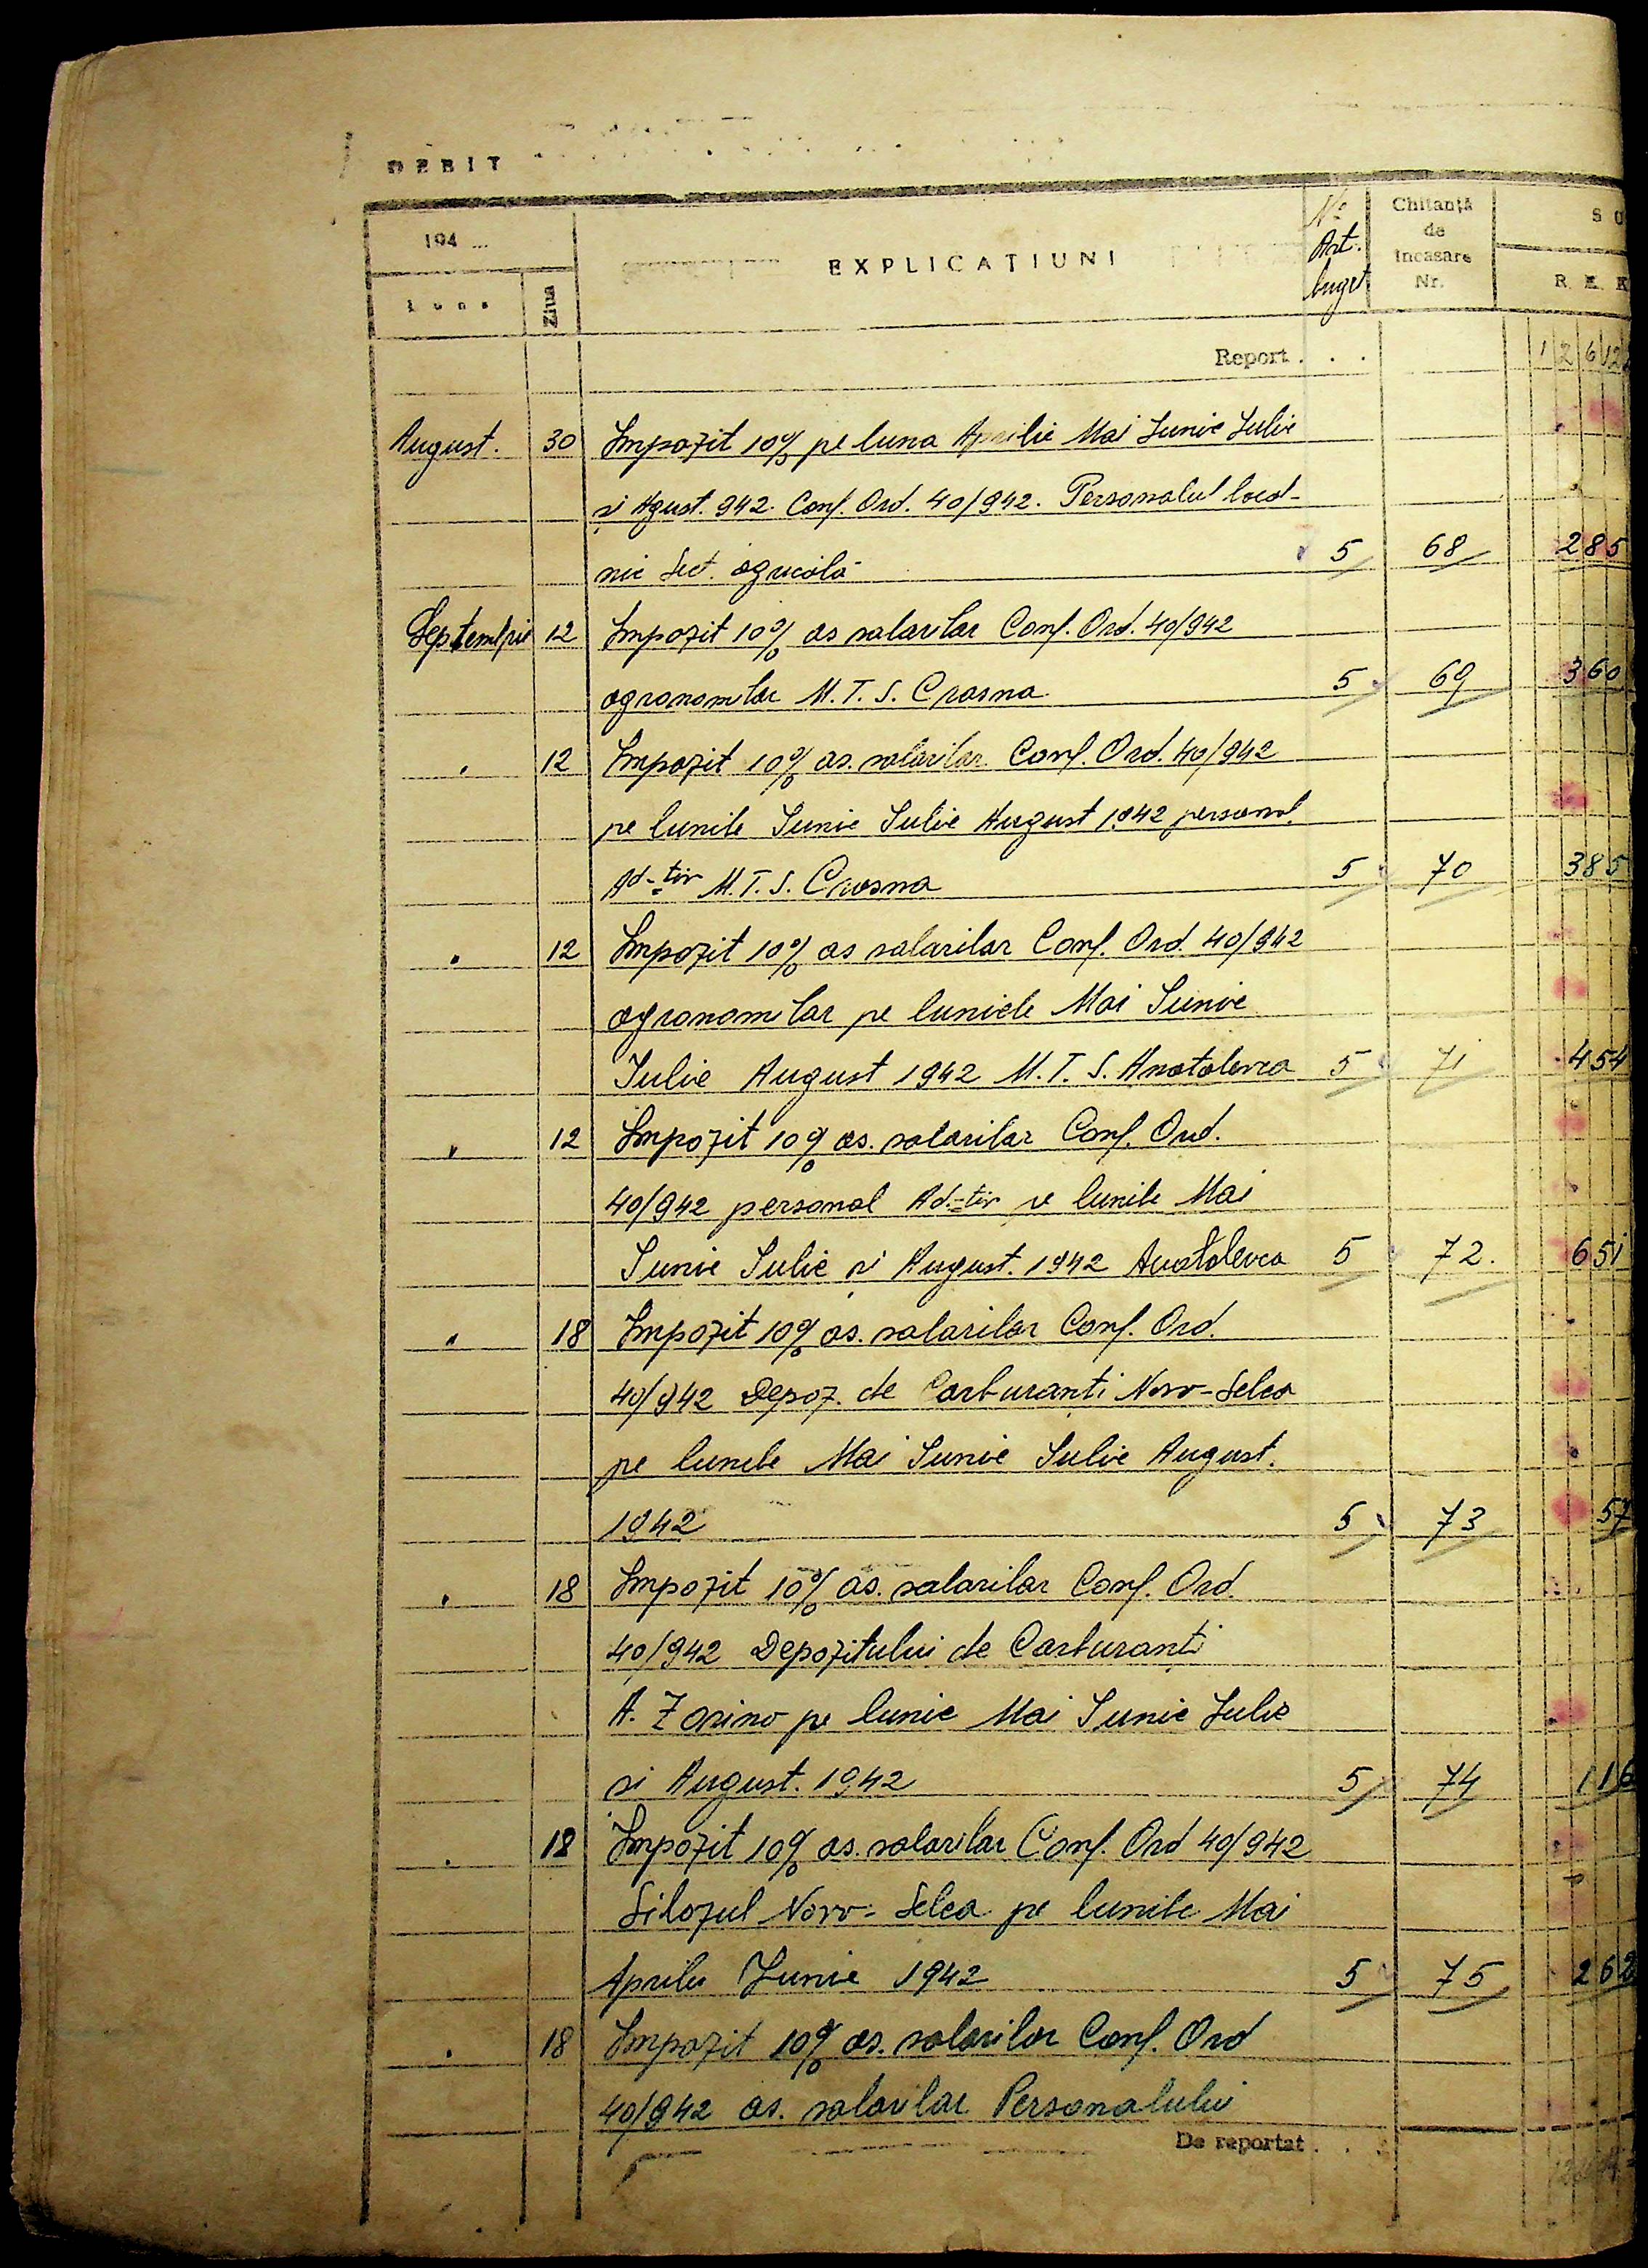 DEBIT
194 ...
Luna
Ziua
EXPLICAȚIUNI
No Art. buget
Chitanță de încasare Nr.
S U
R E
Report . . .
1 2 6 12
August. 30 Impozit 10% pe luna Aprilie Mai Iunie Iulie
și Agust. 942. Conf. Ord. 40/942. Personalul
nic Sect. agricolă 5 68 285
Septembrie 12 Impozit 10% as salarilor Conf. Ord. 40/942
agronomilor M.T.S. Crasna 5 69 360
" 12 Impozit 10% as. salarilor Conf. Ord. 40/942
pe lunile Iunie Iulie August 1942 personal
Ad-tiv M.T.S. Crasna 5 70 385
" 12 Impozit 10% as salarilor Conf. Ord. 40/942
agronomilor pe luniele Mai Iunie
Iulie August 1942 M.T.S. Anatolevca 5 71 454
" 12 Impozit 10% as. salarilor Conf. Ord.
40/942 personal Ad-tiv pe lunile Mai
Iunie Iulie și August. 1942 Anatolevca 5 72. 651
" 18 Impozit 10% as. salarilor Conf. Ord.
40/942 Depoz. de Carburanți Novo-Selca
pe lunile Mai Iunie Iulie August.
1942 5 73 57
" 18 Impozit 10% as. salarilor Conf. Ord.
40/942 Depozitului de Carburanți
A. Zorino pe lunie Mai Iunie Iulie
si August. 1942 5 74 116
" 18 Impozit 10% as. salarilor Conf. Ord 40/942
Silozul Novo-Selca pe lunile Mai
Aprilie Iunie 1942 5 75 262
" 18 Impozit 10% as. salarilor Conf. Ord
40/942 as. salarilor Personalului
De reportat . . .